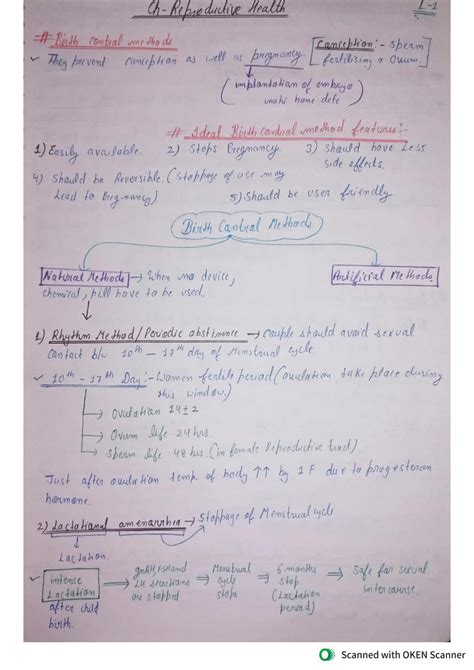 Ch- Reproductive Health
L-1
# Birth control methods
✓ They prevent conception as well as pregnancy.
[Conception:- Sperm fertilising a Ovum.]
(implantation of embryo nahi hone dete)
# Ideal Birth control method features:-
1) Easily available. 2) Stops Pregnancy 3) Should have Less side effects.
4) Should be Reversible. (Stoppage of use may Lead to Pregnancy) 5) Should be user friendly.
Birth Control Methods
Natural Methods → When no device, chemical, pill have to be used.
Artificial Methods
1) Rhythm Method/Periodic abstinence → Couple should avoid sexual
contact b/w 10th – 17th day of Menstrual cycle.
✓ 10th – 17th Day:- Women fertile period (ovulation take place during
this window.)
→ Ovulation 14±2
→ Ovum life 24 hrs.
→ Sperm life 48 hrs. (in female Reproductive tract)
Just after ovulation temp. of body ↑↑ by 1 F due to progesteron
hormone.
2) Lactational amenorrhea → Stoppage of Menstrual cycle
Lactation.
✓ intense Lactation after child birth. ⇒ GnRH, FSH and LH secretions are stopped ⇒ Menstrual cycle stops ⇒ 6 months stop (Lactation period) ⇒ Safe for sexual intercourse.
Scanned with OKEN Scanner